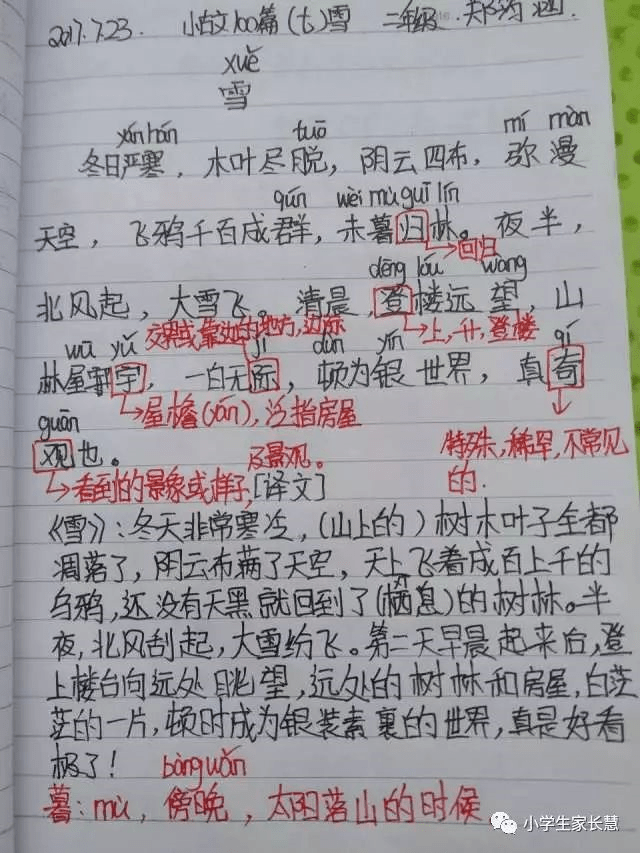 2017.7.23. 小古文100篇(七)雪 二年级 郑
xuě
雪
yán hán tuō mí màn
冬日严寒，木叶尽脱，阴云四布，弥漫
qún wèi mù guī lín
天空，飞鸦千百成群，未暮归林。夜半，
→回归
dēng lóu wàng
北风起，大雪飞。清晨，登楼远望，山
交界或靠边的地方，边际 →上，升，登楼
wū yǔ jì dùn yín qí
林屋宇，一白无际，顿为银世界，真奇
→屋檐(yán)，泛指房屋
guān
观也。 及景观。 特殊，稀罕，不常见
→看到的景象或样子，[译文] 的.
《雪》：冬天非常寒冷，(山上的）树木叶子全都
凋落了，阴云布满了天空，天上飞着成百上千的
乌鸦，还没有天黑就回到了(栖息)的树林。半
夜，北风刮起，大雪纷飞。第二天早晨起来后，登
上楼台向远处眺望，远处的树林和房屋，白茫
茫的一片，顿时成为银装素裹的世界，真是好看
极了！ bàng wǎn
暮：mù，傍晚，太阳落山的时候
小学生家长慧